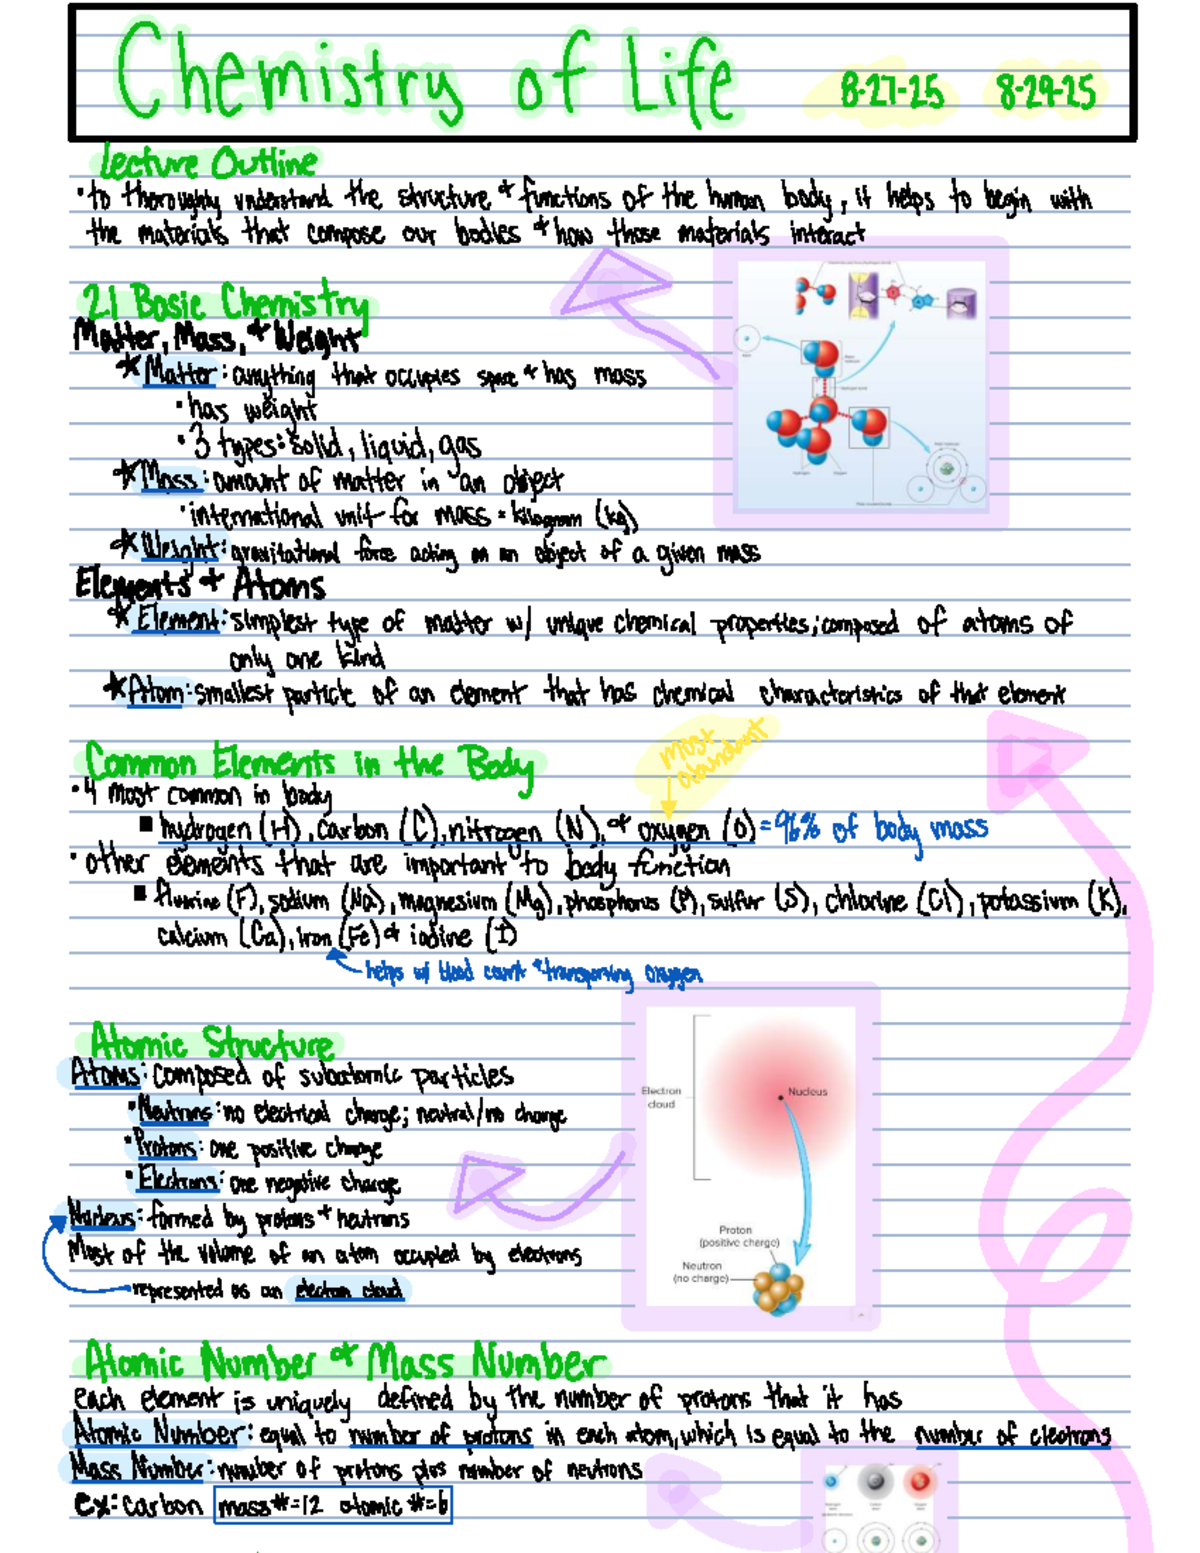 Chemistry of Life 8-27-25 8-29-25
Lecture Outline
• to thoroughly understand the structure & functions of the human body, it helps to begin with
the materials that compose our bodies & how those materials interact
2.1 Basic Chemistry
Matter, Mass, & Weight
★ Matter: anything that occupies space & has mass
• has weight
• 3 types: solid, liquid, gas
★ Mass: amount of matter in an object
• international unit for mass = kilogram (kg)
★ Weight: gravitational force acting on an object of a given mass
Elements & Atoms
★ Element: simplest type of matter w/ unique chemical properties; composed of atoms of
only one kind
★ Atom: smallest particle of an element that has chemical characteristics of that element
most
abundant
Common Elements in the Body
• 4 most common in body
▪ hydrogen (H), carbon (C), nitrogen (N), & oxygen (O) = 96% of body mass
• other elements that are important to body function
▪ fluorine (F), sodium (Na), magnesium (Mg), phosphorus (P), sulfur (S), chlorine (Cl), potassium (K),
calcium (Ca), iron (Fe) & iodine (I)
helps w/ blood count & transporting oxygen
Atomic Structure
Atoms: composed of subatomic particles
• Neutrons: no electrical charge; neutral/no charge
• Protons: one positive charge
• Electrons: one negative charge
Nucleus: formed by protons & neutrons
Most of the volume of an atom occupied by electrons
represented as an electron cloud
Electron
cloud
Nucleus
Proton
(positive charge)
Neutron
(no charge)
Atomic Number & Mass Number
each element is uniquely defined by the number of protons that it has
Atomic Number: equal to number of protons in each atom, which is equal to the number of electrons
Mass Number: number of protons plus number of neutrons
ex: carbon mass #=12 atomic #=6